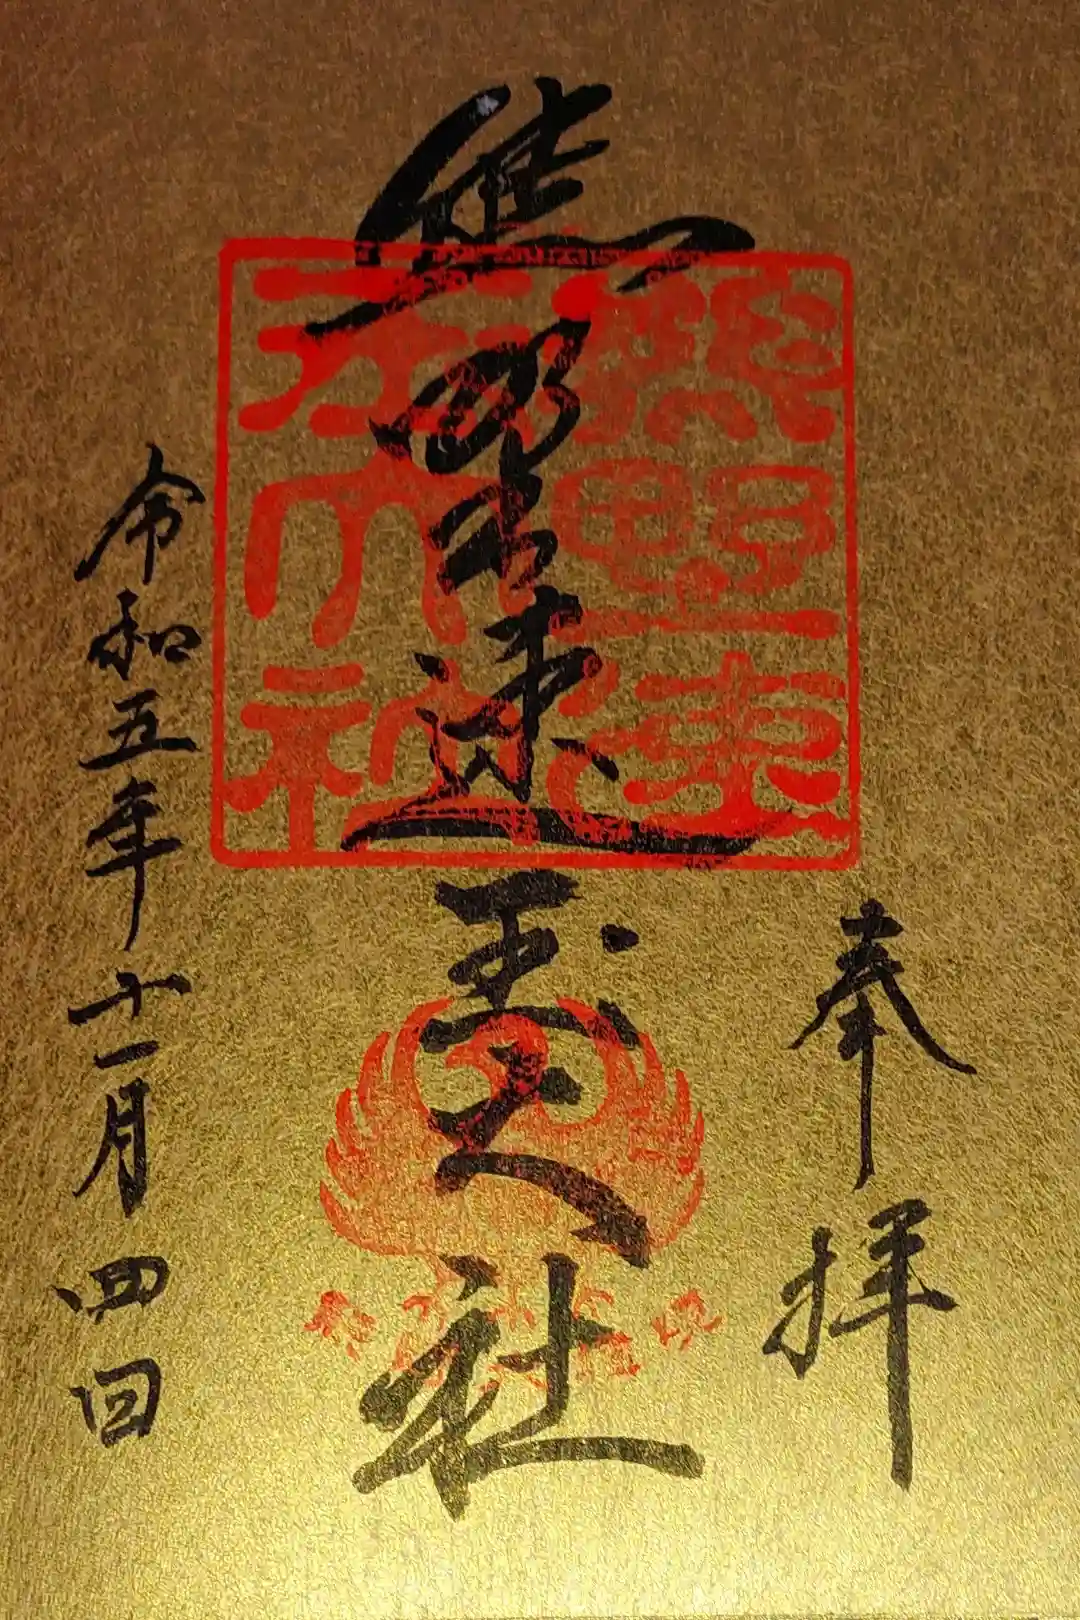 奉拝
熊野速玉大社
令和五年十一月四日
熊野速玉大社